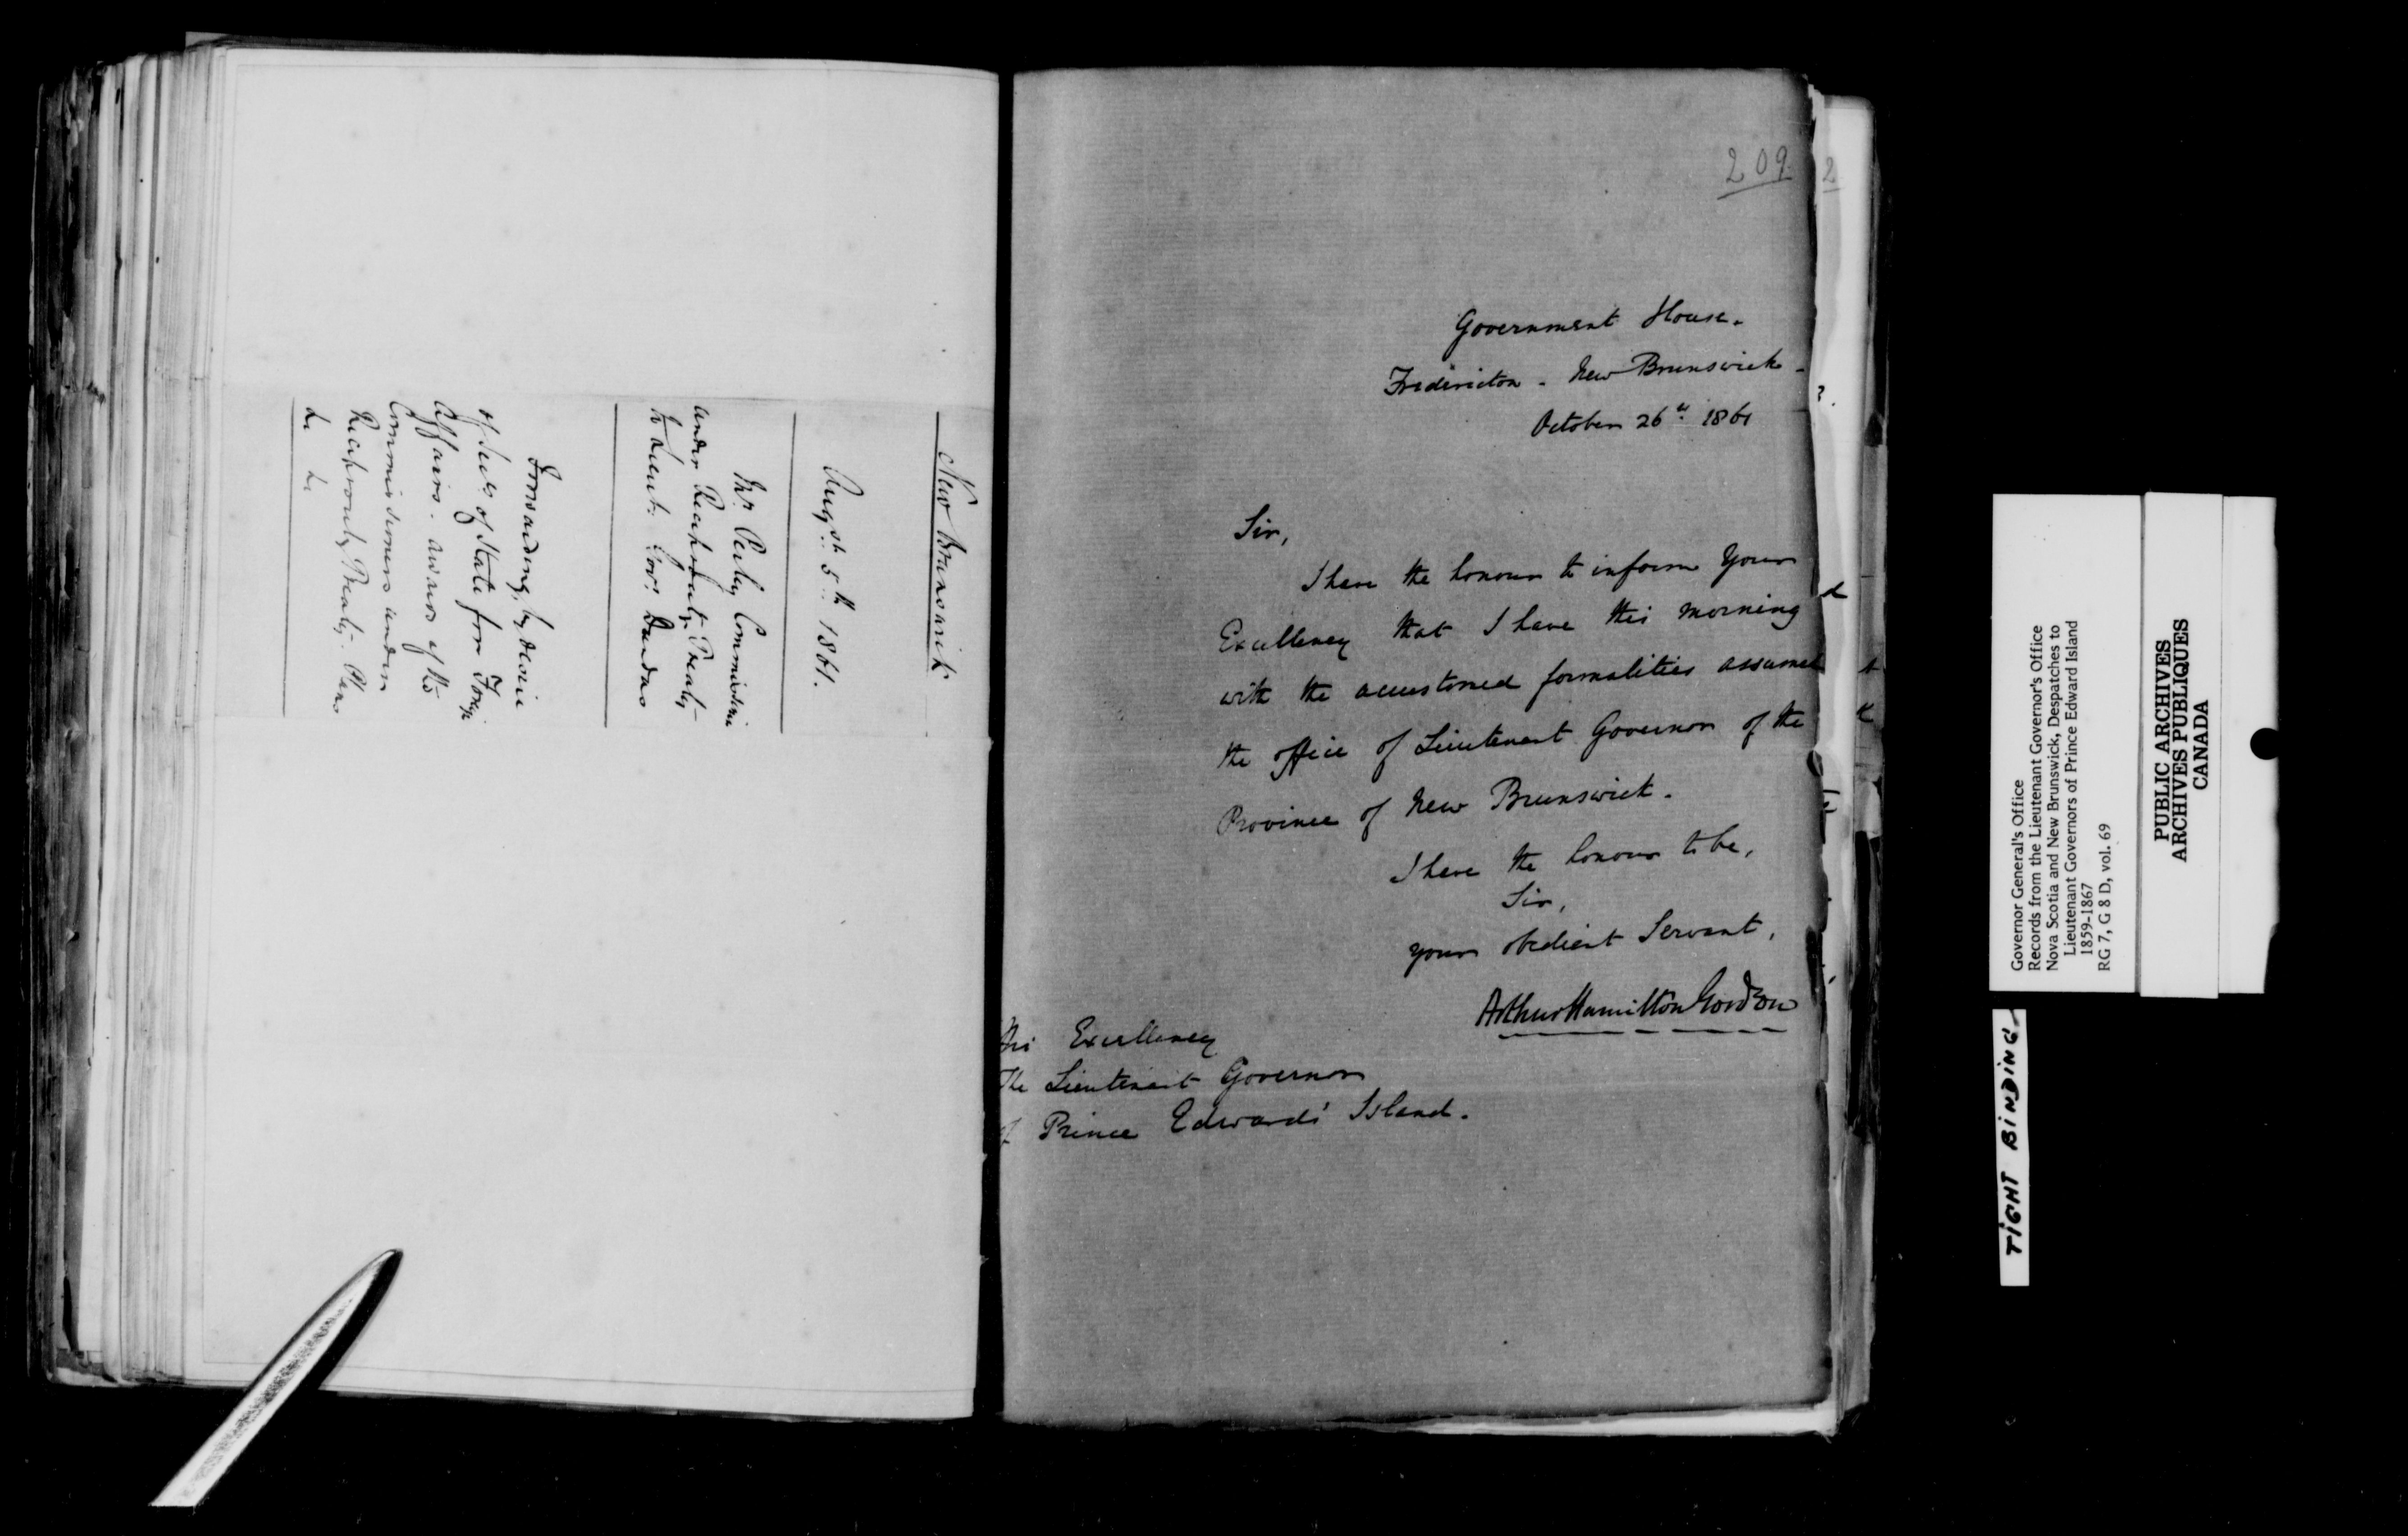 New Brunswick
Augst. 5th 1861.
Mr. Perley Commissione
under Reciprocity Treaty
to Lieut. Govr. Dundas
Forwarding, by desire
of Secy of State for Foreign
Affairs. awards of the
Commissioners under
Reciprocity Treaty. Plans
&c &c
209.
2
Government House.
Fredericton - New Brunswick -
October 26th 1861
Sir,
I have the honour to inform Your
Excellency that I have this morning
with the accustomed formalities assumed
the office of Lieutenant Governor of the
Province of New Brunswick.
I have the honour to be,
Sir,
your obedient Servant,
Arthur Hamilton Gordon
His Excellency
The Lieutenant Governor
of Prince Edwards' Island.
Governor General's Office
Records from the Lieutenant Governor's Office
Nova Scotia and New Brunswick, Despatches to
Lieutenant Governors of Prince Edward Island
1859-1867
RG 7, G 8 D, vol. 69
PUBLIC ARCHIVES
ARCHIVES PUBLIQUES
CANADA
TIGHT BINDING